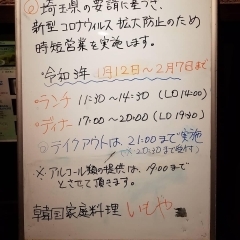 ② 埼玉県の要請に基づき、
新型コロナウィルス拡大防止のため
時短営業を実施します。
令和3年 1月12日〜2月7日まで
・ランチ 11:30〜14:30 (LO14:00)
・ディナー 17:00〜20:00 (LO 19:30)
◎テイクアウトは、21:00まで実施
20:30まで受付
※アルコール類の提供は、19:00まで
とさせて頂きます。
韓国家庭料理 いもや